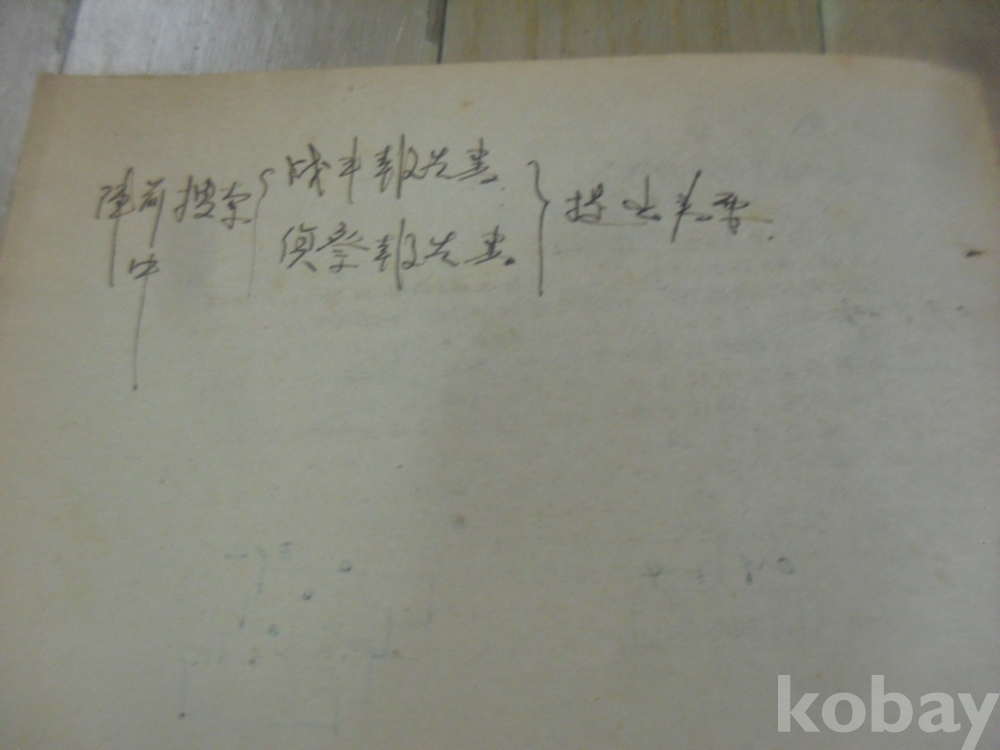 陣前搜索 { 战斗報告書.
中
偵察報告書. } 提出 要.
kobay